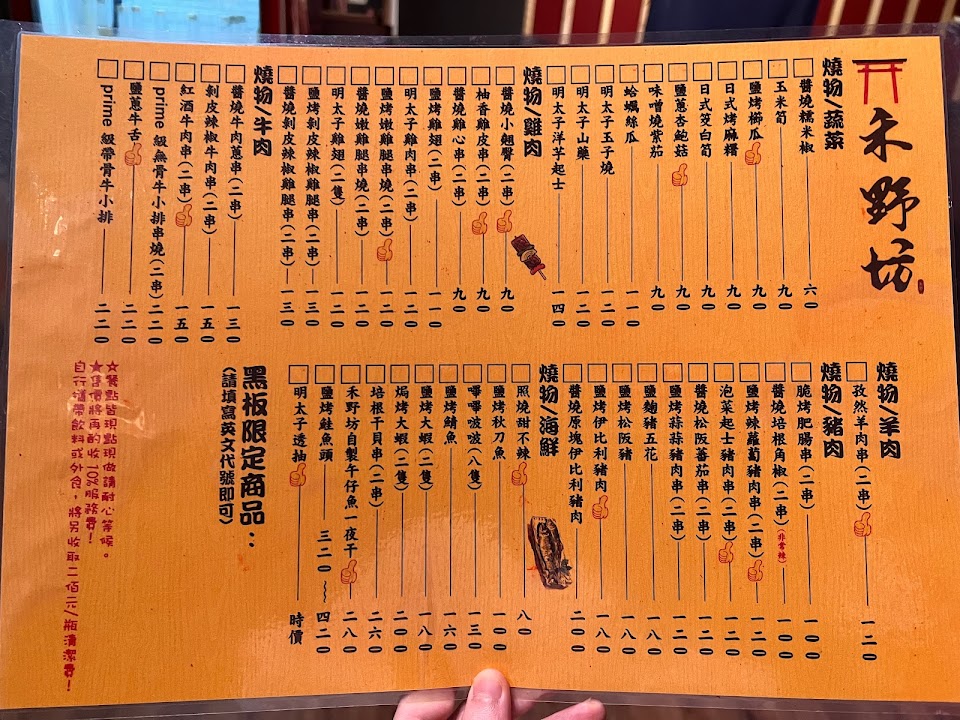 禾野坊
燒物/蔬菜
□醬燒糯米椒 六0
□玉米筍 九0
□鹽烤櫛瓜 九0
□日式烤麻糬 九0
□日式筊白筍 九0
□鹽蔥杏鮑菇 九0
□味噌燒紫茄 九0
□蛤蠣絲瓜 一一0
□明太子玉子燒 一二0
□明太子山藥 一二0
□明太子洋芋起士 一四0
燒物/雞肉
□醬燒小翹臀(二串) 九0
□柚香雞皮串(二串) 九0
□醬燒雞心串(二串) 九0
□鹽烤雞翅(二串) 一一0
□明太子雞肉串(二串) 一二0
□鹽烤嫩雞腿串燒(二串) 一二0
□醬燒嫩雞腿串燒(二串) 一二0
□明太子雞翅(二隻) 一二0
□鹽烤剝皮辣椒雞腿串(二串) 一三0
□醬燒剝皮辣椒雞腿串(二串) 一三0
燒物/牛肉
□醬燒牛肉蔥串(二串) 一三0
□剝皮辣椒牛肉串(二串) 一五0
□紅酒牛肉串(二串) 一五0
□prime 級無骨牛小排串燒(二串) 二二0
□鹽蔥牛舌 二二0
□prime 級帶骨牛小排 二二0
燒物/羊肉
□孜然羊肉串(二串) 一二0
燒物/豬肉
□脆烤肥腸串(二串) 一00
□醬燒培根角椒(二串)(非常辣) 一00
□鹽烤辣蘿蔔豬肉串(二串) 一二0
□泡菜起士豬肉串(二串) 一二0
□醬燒松阪蕃茄串(二串) 一二0
□鹽烤蒜蒜豬肉串(二串) 一二0
□鹽麴豬五花 一八0
□鹽烤松阪豬 一八0
□鹽烤伊比利豬肉 一八0
□醬燒原塊伊比利豬肉 二00
燒物/海鮮
□照燒甜不辣 八0
□鹽烤秋刀魚 一00
□嗶嗶啵啵(八隻) 一三0
□鹽烤鯖魚 一六0
□鹽烤大蝦(二隻) 一八0
□焗烤大蝦(二隻) 二00
□培根干貝串(二串) 二六0
□禾野坊自製午仔魚一夜干 二八0
□鹽烤鮭魚頭 三二0~四二0
□明太子透抽 時價
黑板限定商品:
(請填寫英文代號即可)
☆餐點皆現點現做請耐心等候。
★售價將再酌收 10%服務費!
自行攜帶飲料或外食,將另收取二佰元/瓶清潔費!